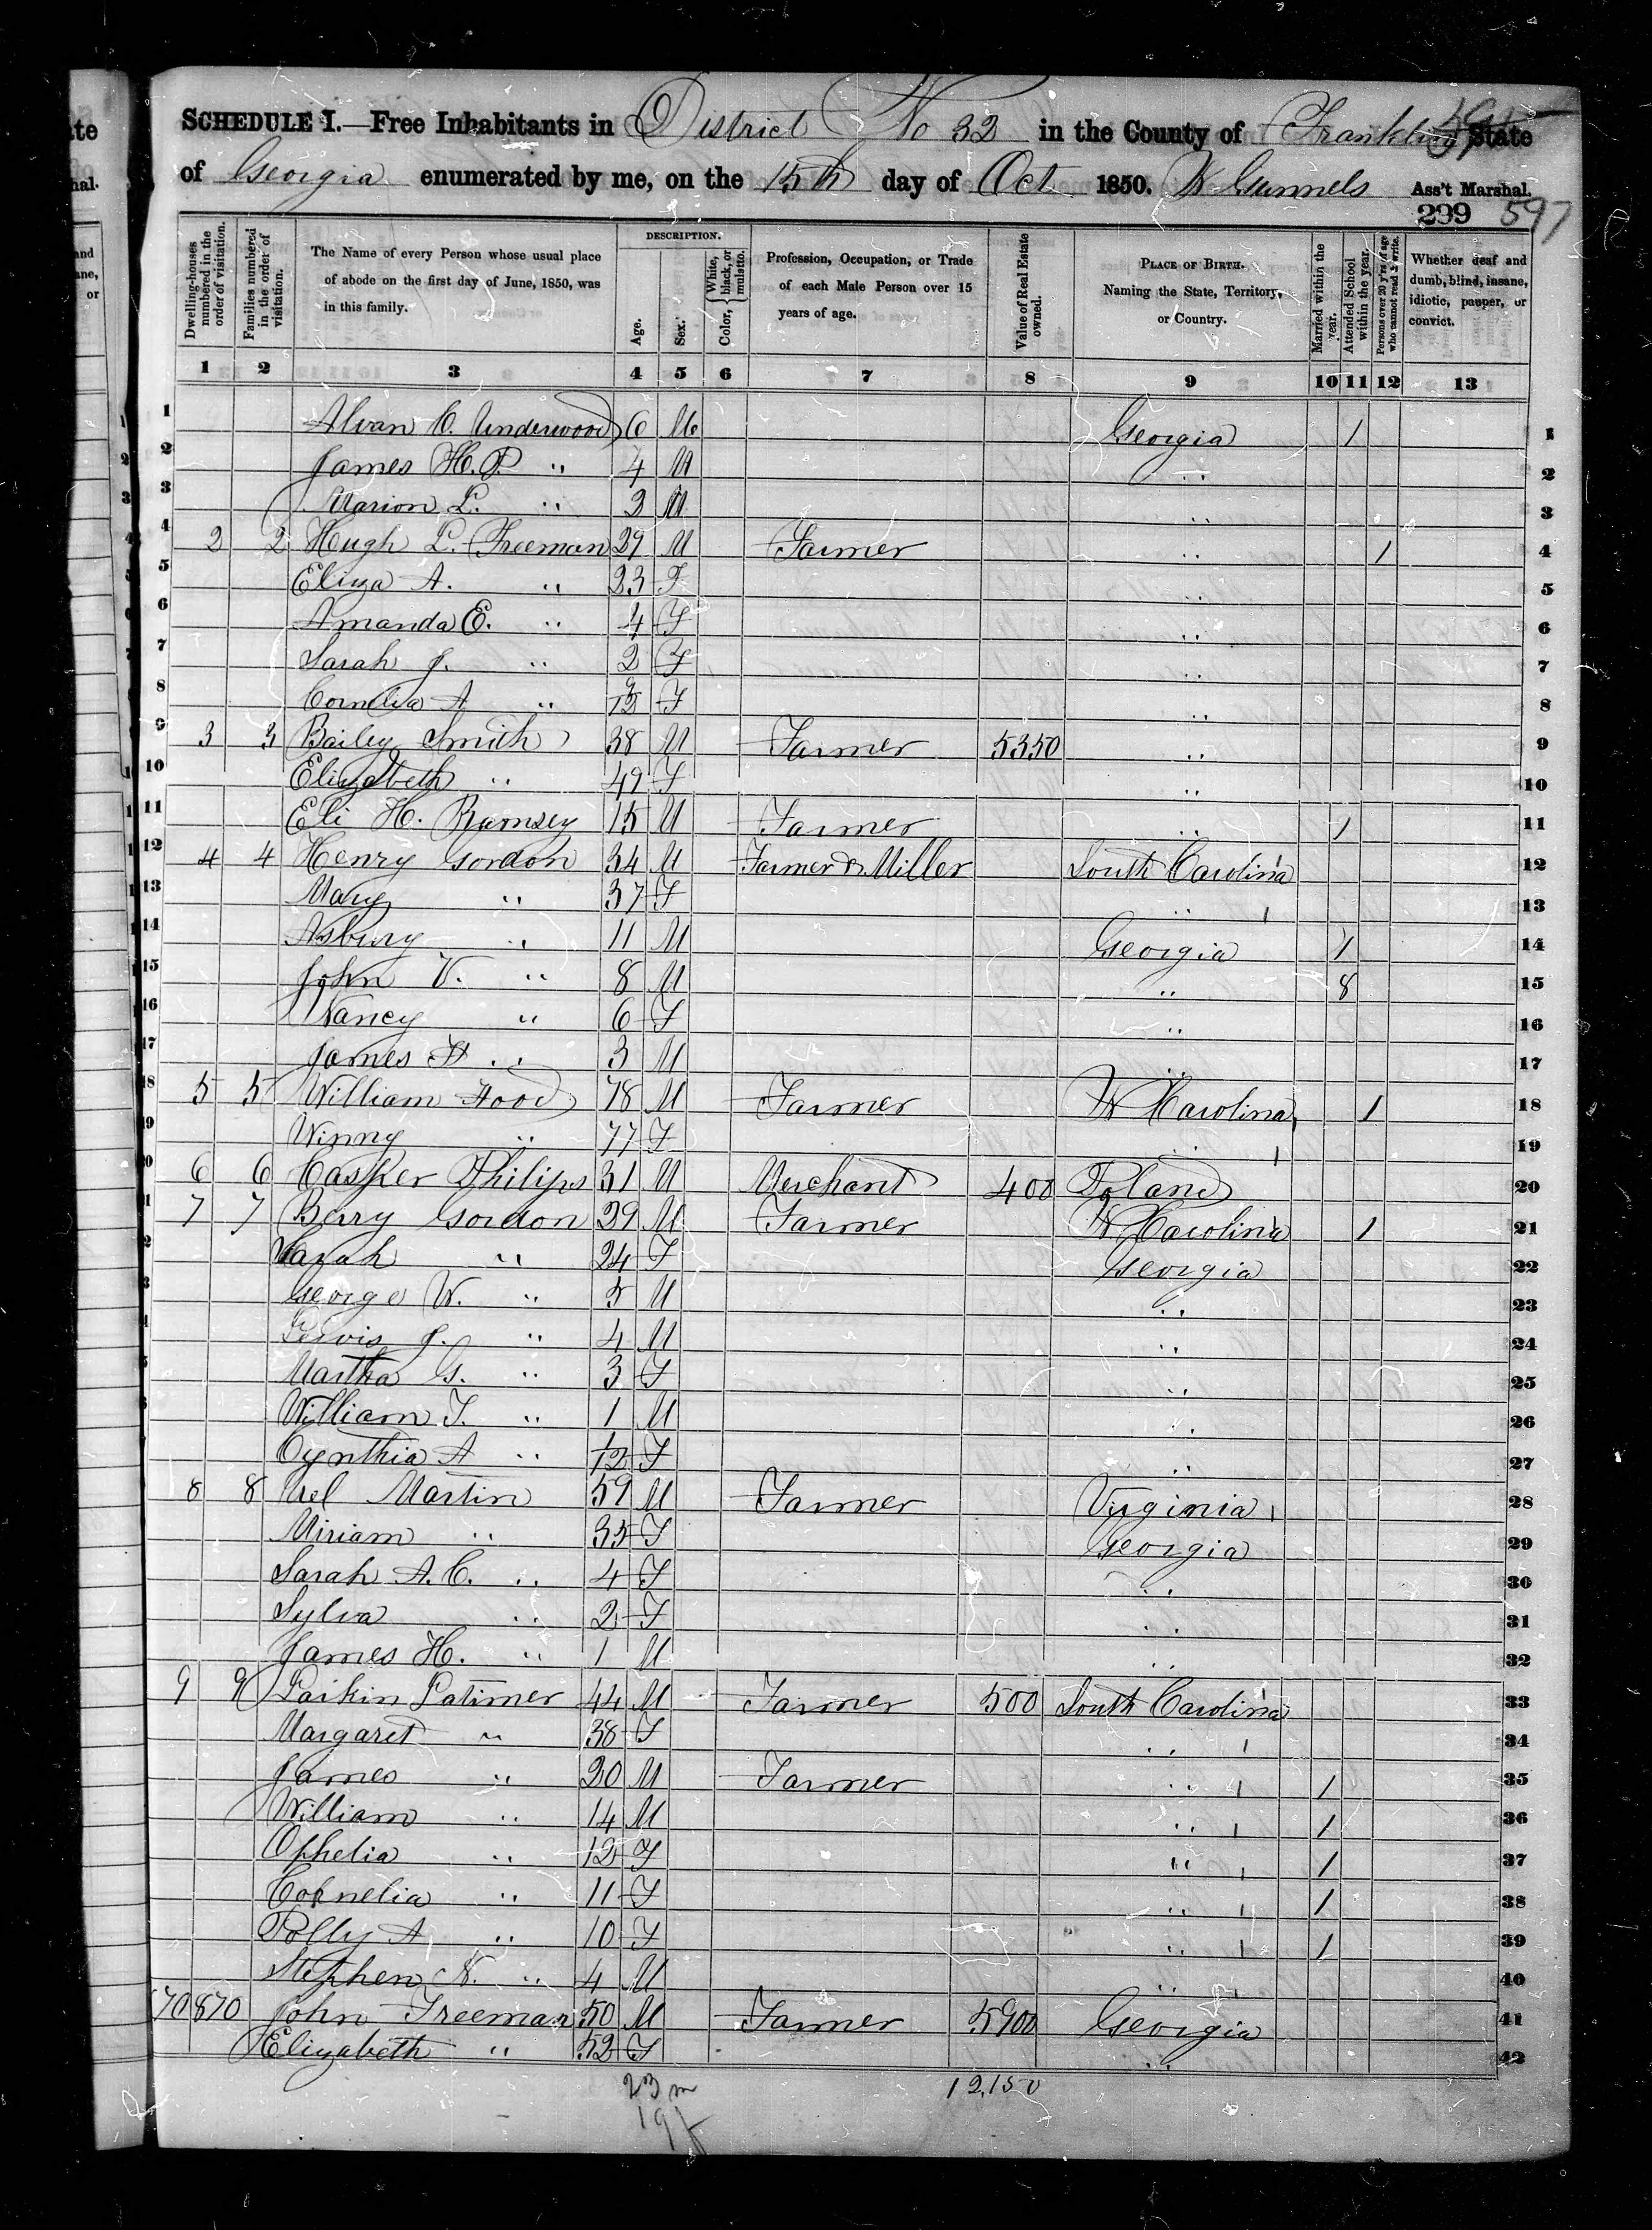 SCHEDULE I.—Free Inhabitants in District No 32 in the County of Franklin State
of Georgia enumerated by me, on the 15th day of Oct 1850. W Gunnels Ass't Marshal.
299 597
Dwelling-houses numbered in the order of visitation. Families numbered in the order of visitation. The Name of every Person whose usual place of abode on the first day of June, 1850, was in this family. DESCRIPTION. Age. Sex. Color, White, black, or mulatto. Profession, Occupation, or Trade of each Male Person over 15 years of age. Value of Real Estate owned. PLACE OF BIRTH. Naming the State, Territory, or Country. Married within the year. Attended School within the year. Persons over 20 y'rs of age who cannot read & write. Whether deaf and dumb, blind, insane, idiotic, pauper, or convict.
1 2 3 4 5 6 7 8 9 10 11 12 13
1 Alvan C. Underwood 6 M Georgia 1 1
2 James H. P. " 4 M " 2
3 Marion L. " 2 M " 3
4 2 2 Hugh L. Freeman 29 M Farmer " 1 4
5 Eliza A. " 23 F " 5
6 Amanda E. " 4 F " 6
7 Sarah J. " 2 F " 7
8 Cornelia A " 9/12 F " 8
9 3 3 Bailey Smith 38 M Farmer 5350 " 9
10 Elizabeth " 49 F " 10
11 Eli H. Ramsey 15 M Farmer " 1 11
12 4 4 Henry Gordon 34 M Farmer & Miller South Carolina 12
13 Mary " 37 F " 13
14 Asbury " 11 M Georgia 1 14
15 John V. " 8 M " 8 15
16 Nancy " 6 F " 16
17 James H " 3 M " 17
18 5 5 William Hood 78 M Farmer N Carolina 1 18
19 Winny " 77 F " 19
20 6 6 Casper Philips 31 M Merchant 400 Poland 20
21 7 7 Berry Gordon 29 M Farmer N Carolina 1 21
22 Sarah " 24 F Georgia 22
23 George W. " 5 M " 23
24 Lewis J. " 4 M " 24
25 Martha G. " 3 F " 25
26 William T. " 1 M " 26
27 Cynthia A " 1/12 F " 27
28 8 8 Uel Martin 59 M Farmer Virginia 28
29 Miriam " 35 F Georgia 29
30 Sarah A. C. " 4 F " 30
31 Sylva " 2 F " 31
32 James H. " 1 M " 32
9 9 Larkin Latimer 44 M Farmer 500 South Carolina 33
Margaret " 38 F " 34
James " 20 M Farmer " 1 35
William " 14 M " 1 36
Ophelia " 12 F " 1 37
Cornelia " 11 F " 1 38
Polly A " 10 F " 1 39
Stephen N. " 4 M " 40
870 John Freeman 50 M Farmer 5900 Georgia 41
Elizabeth " 52 F " 42
23 m 12,150
19 f